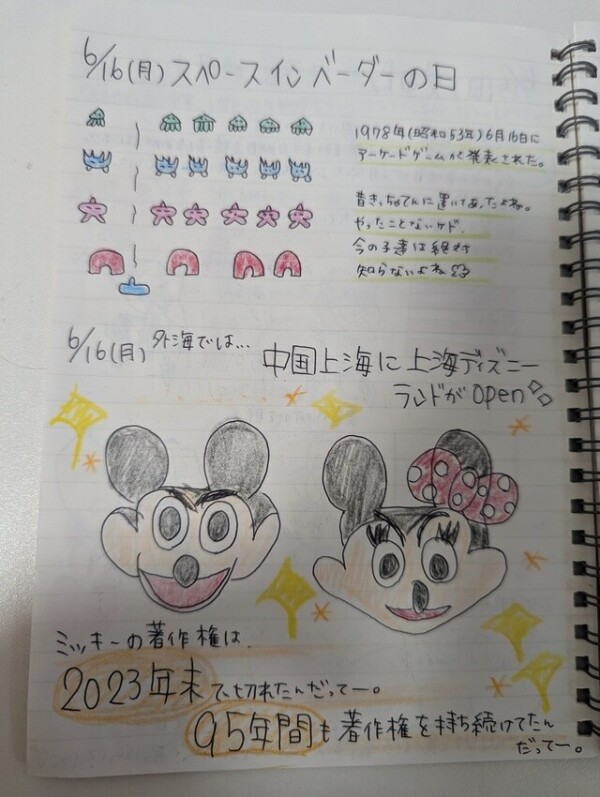 6/16(月)スペースインベーダーの日
1978年(昭和53年)6月16日に
アーケードゲームが発表された。
昔きっちゃてんに置いてあったよね。
やったことないケド
今の子達は絶対
知らないよね
6/16(月) 外海では…
中国上海に上海ディズニー
ランドがopen
ミッキーの著作権は、
2023年末で切れたんだってー。
95年間も著作権を持ち続けてたん
だってー。